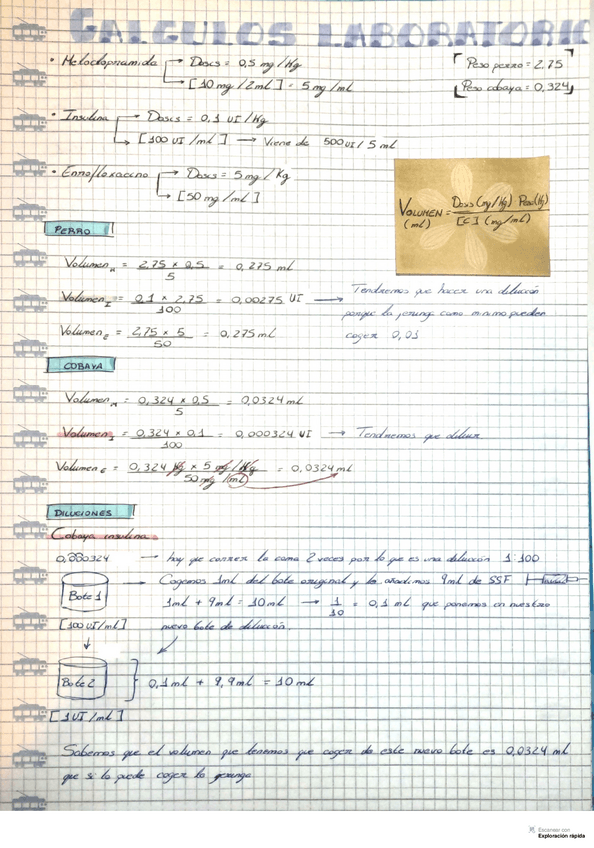 CALCULOS LABORATORIO
• Metoclopramida → Dosis = 0,5 mg/Kg
→ [10 mg/2ml] = 5 mg/ml
Peso perro = 2,75
Peso cobaya = 0,324
• Insulina → Dosis = 0,1 UI/Kg
→ [100 UI/ml] → Viene de 500 UI/5 ml
• Enrofloxacino → Dosis = 5 mg/Kg
→ [50 mg/ml]
VOLUMEN (ml) = Dosis (mg/Kg) · Peso (Kg) / [C] (mg/ml)
PERRO
Volumen M = 2,75 x 0,5 / 5 = 0,275 ml
Volumen I = 0,1 x 2,75 / 100 = 0,00275 UI → Tendremos que hacer una dilución
porque la jeringa como mínimo pueden
coger 0,01
Volumen E = 2,75 x 5 / 50 = 0,275 ml
COBAYA
Volumen M = 0,324 x 0,5 / 5 = 0,0324 ml
Volumen I = 0,324 x 0,1 / 100 = 0,000324 UI → Tendremos que diluir
Volumen E = 0,324 Kg x 5 mg/Kg / 50 mg/(ml) = 0,0324 ml
DILUCIONES
Cobaya insulina
0,000324 → hay que correr la coma 2 veces por lo que es una dilución 1:100
Bote 1 → Cogemos 1ml del bote original y le añadimos 9ml de SSF
1ml + 9ml = 10ml → 1/10 = 0,1 ml que ponemos en nuestro
[100 UI/ml] nuevo bote de dilución.
Bote 2 } 0,1ml + 9,9ml = 10ml
[1 UI/ml]
Sabemos que el volumen que tenemos que coger de este nuevo bote es 0,0324 ml
que si lo puede coger la jeringa
Escaneado con
Exploración rápida